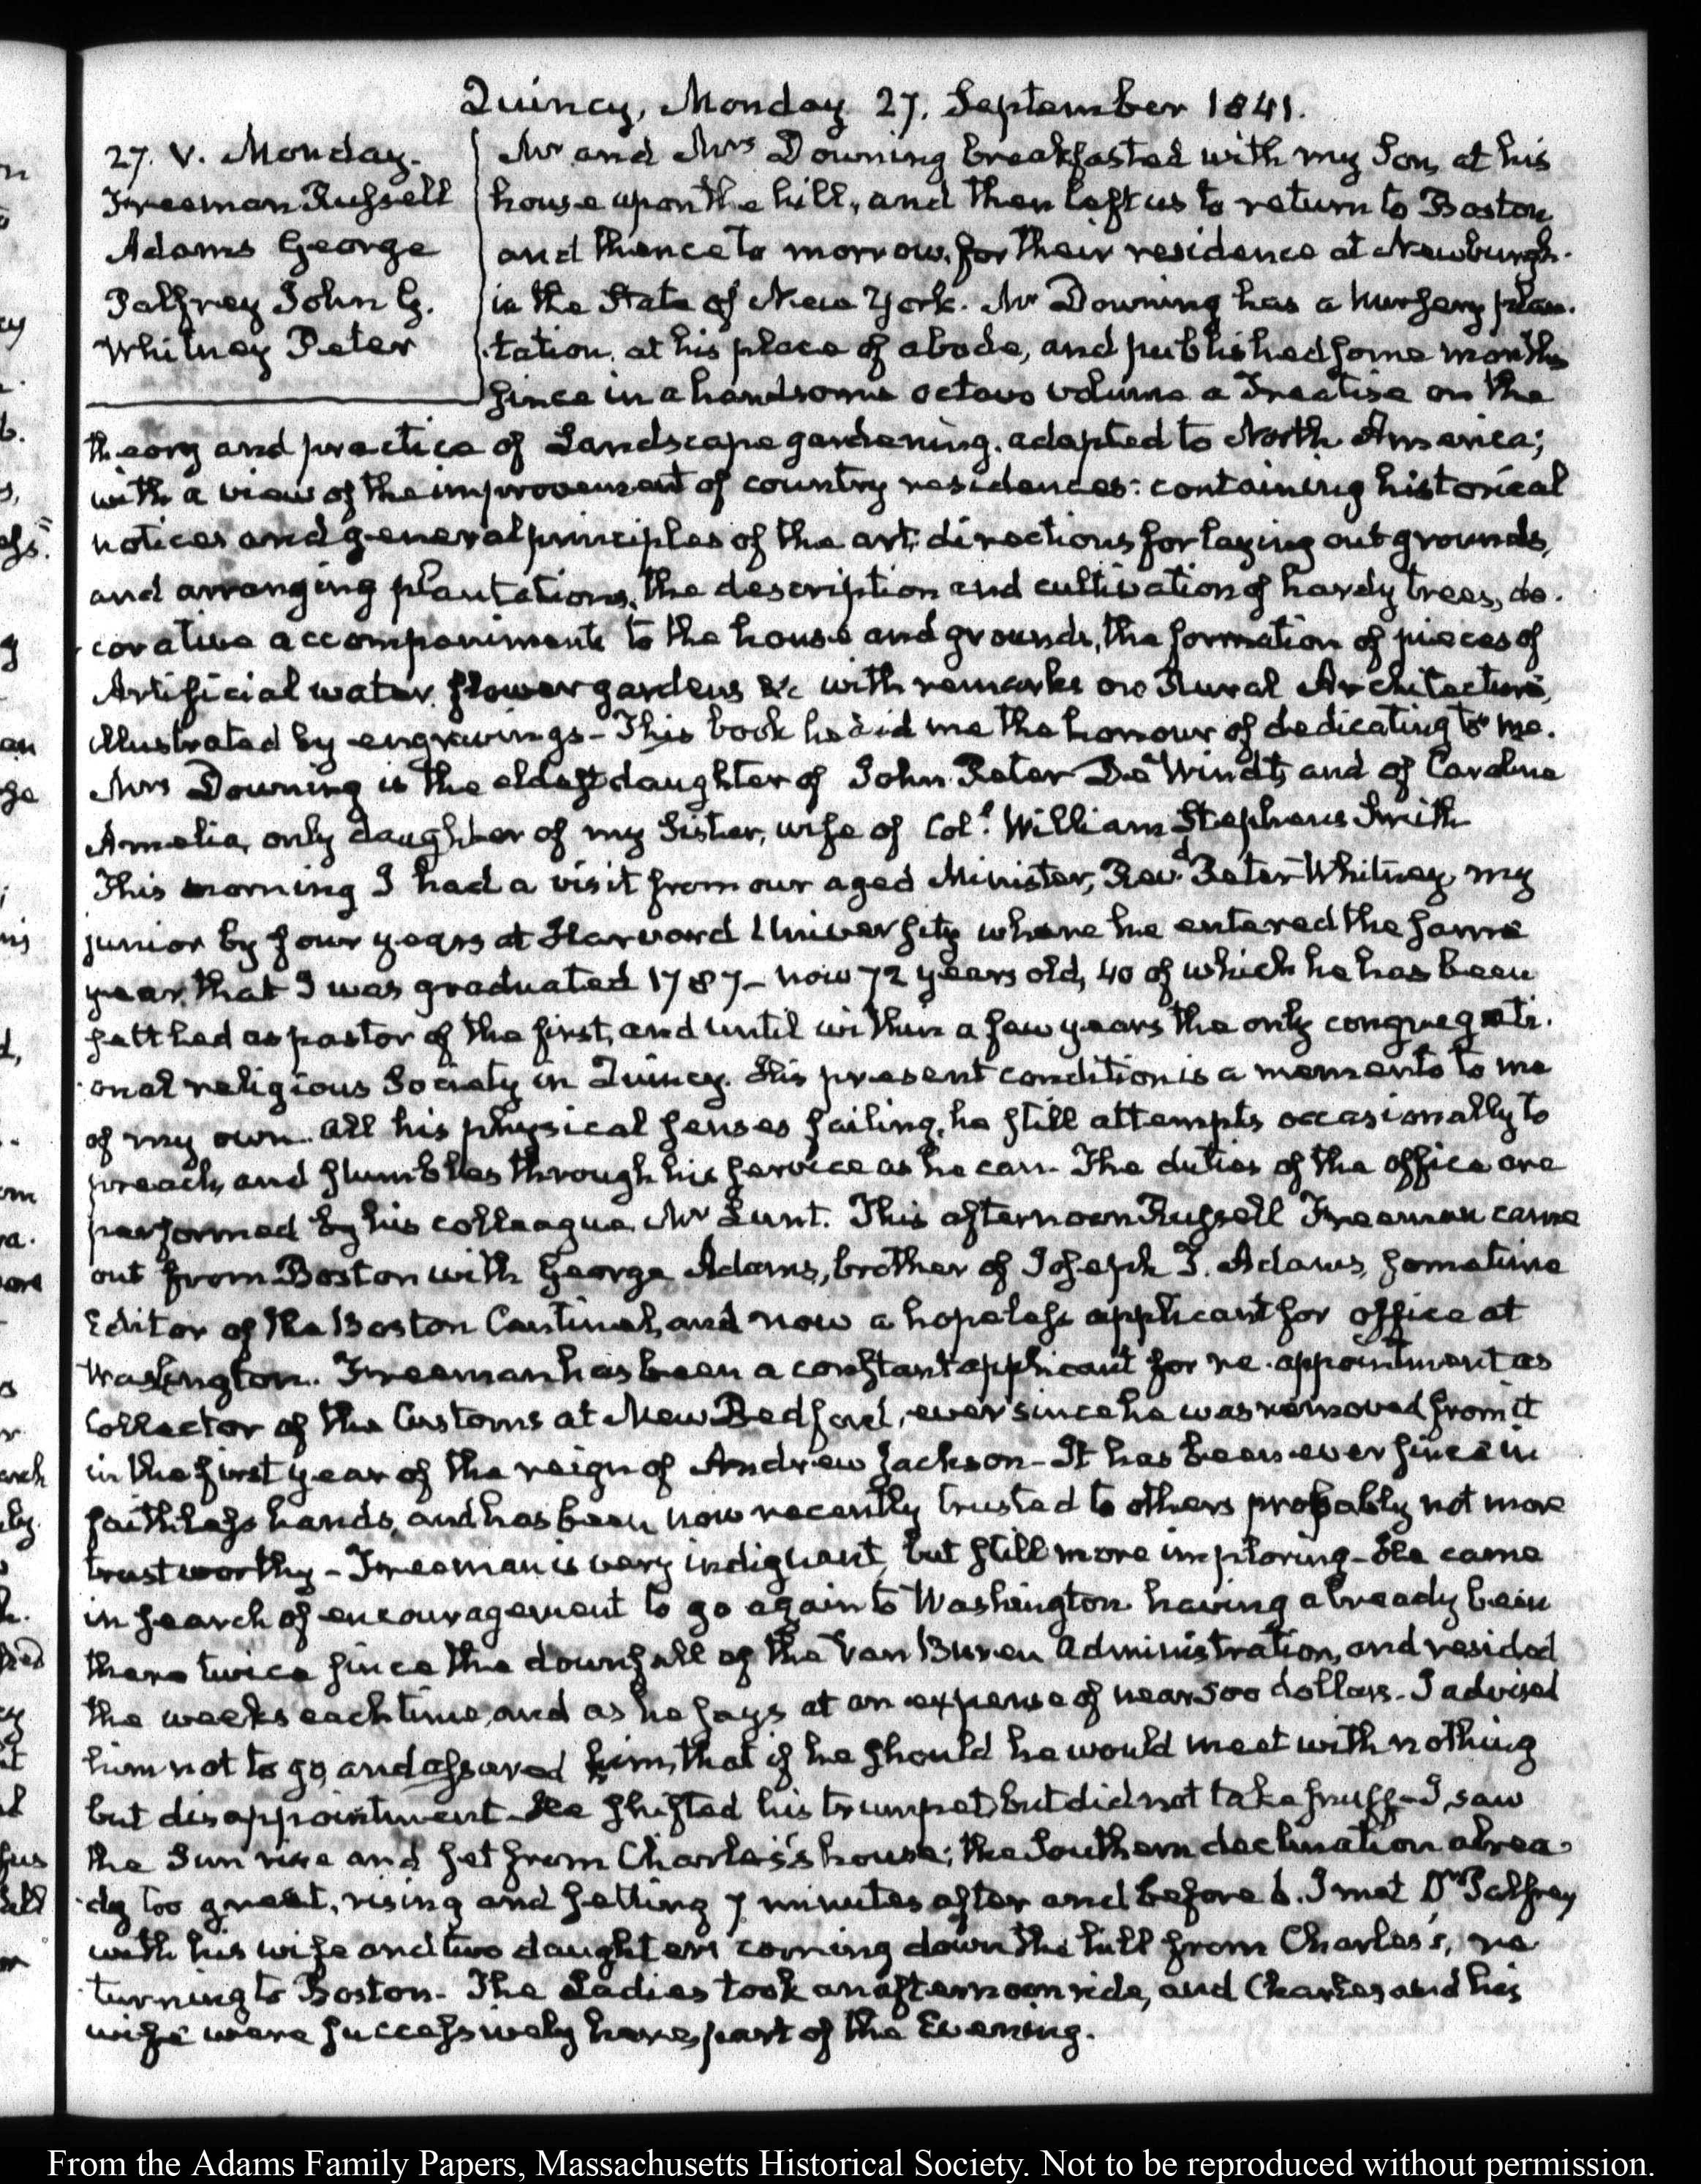 Quincy, Monday 27. September 1841.
27. V. Monday.
Freeman Russell
Adams George
Palfrey John G.
Whitney Peter
Mr and Mrs Downing breakfasted with my Son, at his
house upon the hill, and then left us to return to Boston
and thence to morrow, for their residence at Newburgh.
in the State of New York. Mr Downing has a nursery plan-
tation, at his place of abode, and published some months
since in a handsome octavo volume a Treatise on the
theory and practice of Landscape gardening, adapted to North America;
with a view of the improvement of country residences: containing historical
notices and general principles of the art, directions for laying out grounds,
and arranging plantations, the description and cultivation of hardy trees, de-
corative accompaniments to the house and grounds, the formation of pieces of
Artificial water, flower gardens &c with remarks on Rural Architecture,
illustrated by engravings – This book he did me the honour of dedicating to me.
Mrs Downing is the eldest daughter of John Peter De Windt, and of Caroline
Amelia, only daughter of my Sister, wife of Coll. William Stephens Smith
This morning I had a visit from our aged Minister, Revd. Peter Whitney, my
junior by four years at Harvard University where he entered the same
year, that I was graduated 1787 – now 72 years old, 40 of which he has been
settled as pastor of the first, and until within a few years the only congregati-
onal religious Society in Quincy. His present condition is a memento to me
of my own. All his physical senses failing, he still attempts occasionally to
preach, and stumbles through his service as he can. The duties of the office are
performed by his colleague Mr Lunt. This afternoon Russell Freeman came
out from Boston with George Adams, brother of Joseph T. Adams, sometime
Editor of the Boston Centinel, and now a hopeless applicant for office at
Washington. Freeman has been a constant applicant for re-appointment as
Collector of the Customs at New Bedford, ever since he was removed from it
in the first year of the reign of Andrew Jackson – It has been ever since in
faithless hands, and has been now recently trusted to others probably not more
trustworthy – Freeman is very indignant, but still more imploring – He came
in search of encouragement to go again to Washington having already been
there twice since the downfall of the Van Buren Administration, and resided
the weeks each time, and as he says at an expense of near 500 dollars. I advised
him not to go, and assured him, that if he should he would meet with nothing
but disappointment – He shifted his trumpet, but did not take snuff – I saw
the Sun rise and set from Charles's house; the Southern declination alrea-
dy too great, rising and setting 7 minutes after and before 6. I met Dr Palfrey
with his wife and two daughters coming down the hill from Charles's, re-
turning to Boston. The Ladies took an afternoon ride, and Charles and his
wife were successively here, part of the Evening.
From the Adams Family Papers, Massachusetts Historical Society. Not to be reproduced without permission.